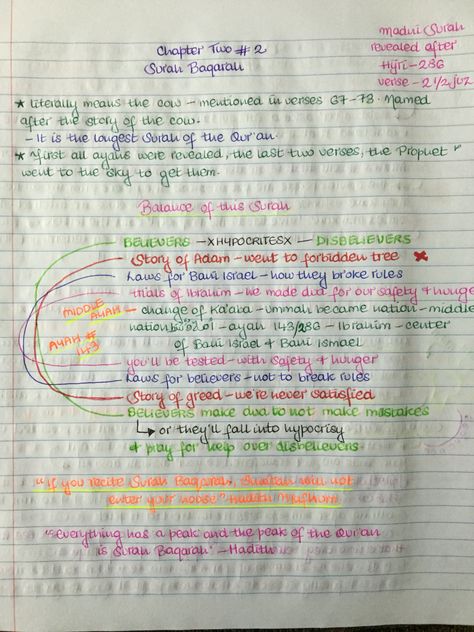 Chapter Two # 2
Surah Baqarah
madni Surah
revealed after
Hijri - 286
verse - 2 1/2 juz
★ literally means the cow - mentioned in verses 67-73. Named
after the story of the cow.
- It is the longest surah of the Qur'an.
★ first all ayahs were revealed, the last two verses, the Prophet
went to the sky to get them.
Balance of this Surah
BELIEVERS - XHYPOCRITESX - DISBELIEVERS
Story of Adam - went to forbidden tree
Laws for Bani Israel - how they broke rules
trials of Ibrahim - he made dua for our safety & hunger
MIDDLE AYAH - change of Ka'aba - ummah became nation - middle
nation - ayah 143/286 - Ibrahim - center
AYAH # 143
of Bani Israel & Bani Ismael
you'll be tested - with safety & hunger
Laws for believers - not to break rules
Story of greed - we're never satisfied
BELIEVERS make dua to not make mistakes
↳ or they'll fall into hypocrisy
& pray for help over disbelievers
"If you recite Surah Baqarah, will not
enter your house" Hadith
"Everything has a peak and the peak of the Qur'an
is Surah Baqarah" - Hadith